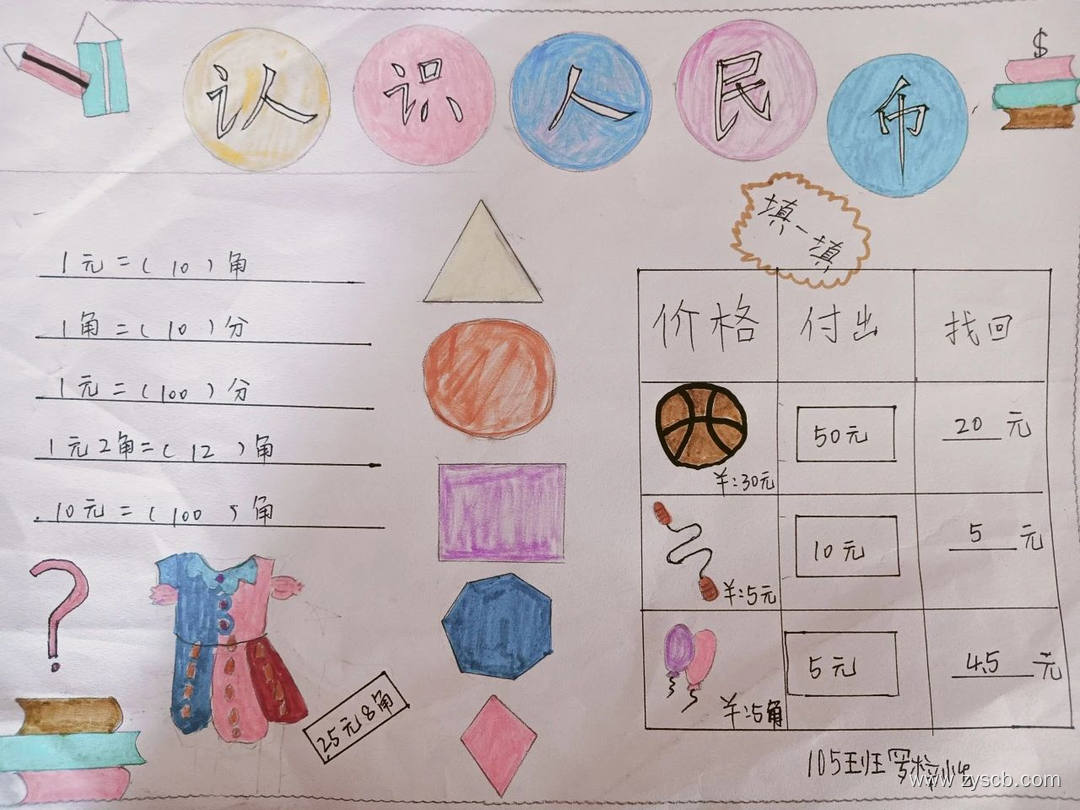 认识人民币
$
填一填
1元=(10)角
1角=(10)分
1元=(100)分
1元2角=(12)角
10元=(100)角
价格 付出 找回
¥:30元 50元 20元
¥:5元 10元 5元
¥:5角 5元 4.5元
25元8角
?
105班
www.zyscb.com